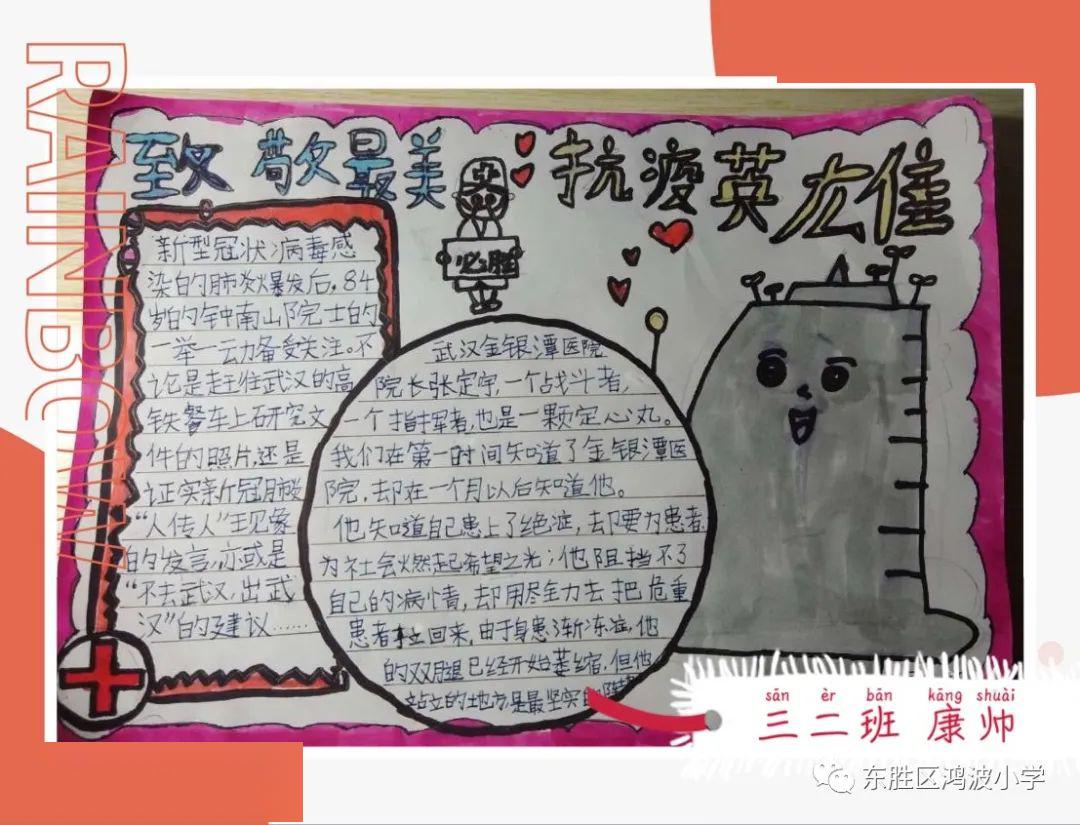 RAINBOW
致敬最美 抗疫英雄
必胜
新型冠状病毒感
染的肺炎爆发后,84
岁的钟南山院士的
一举一动备受关注。不
论是赶往武汉的高
铁餐车上研究文
件的照片,还是
证实新冠肺炎
“人传人”现象
的发言,亦或是
“不去武汉,出武
汉”的建议……
武汉金银潭医院
院长张定宇,一个战斗者,
一个指挥者,也是一颗定心丸。
我们在第一时间知道了金银潭医
院,却在一个月以后知道他。
他知道自己患上了绝症,却要为患者
为社会燃起希望之光;他阻挡不了
自己的病情,却用尽全力去把危重
患者拉回来,由于身患渐冻症,他
的双腿已经开始萎缩,但他
站立的地方是最坚实的
sān èr bān kāng shuài
三二班 康帅
东胜区鸿波小学